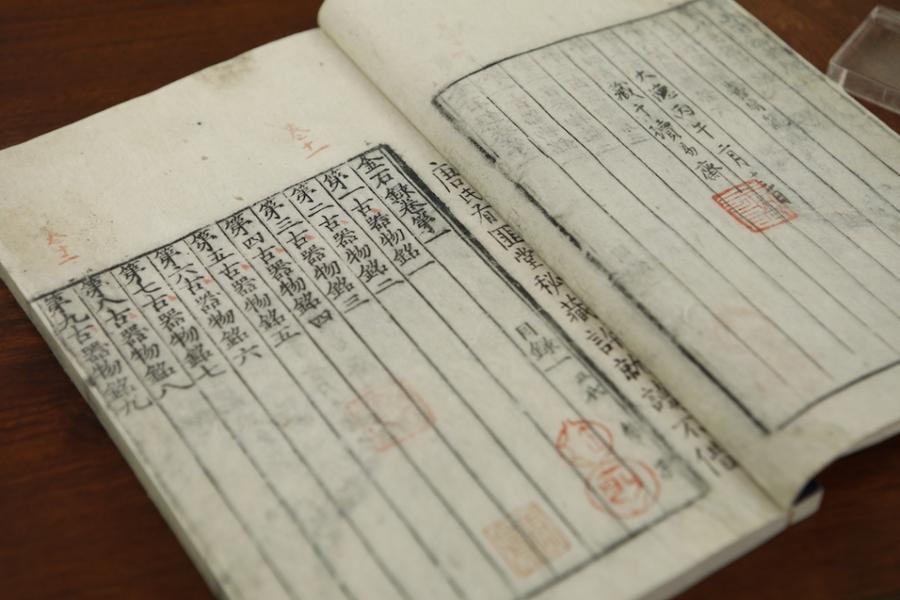 大德丙午二月
藏于讀易齋
唐氏有匪堂秘藏許就讀不借
目錄一
金石錄卷第一
第一古器物銘一
第二古器物銘二
第三古器物銘三
第四古器物銘四
第五古器物銘五
第六古器物銘六
第七古器物銘七
第八古器物銘八
第九古器物銘九